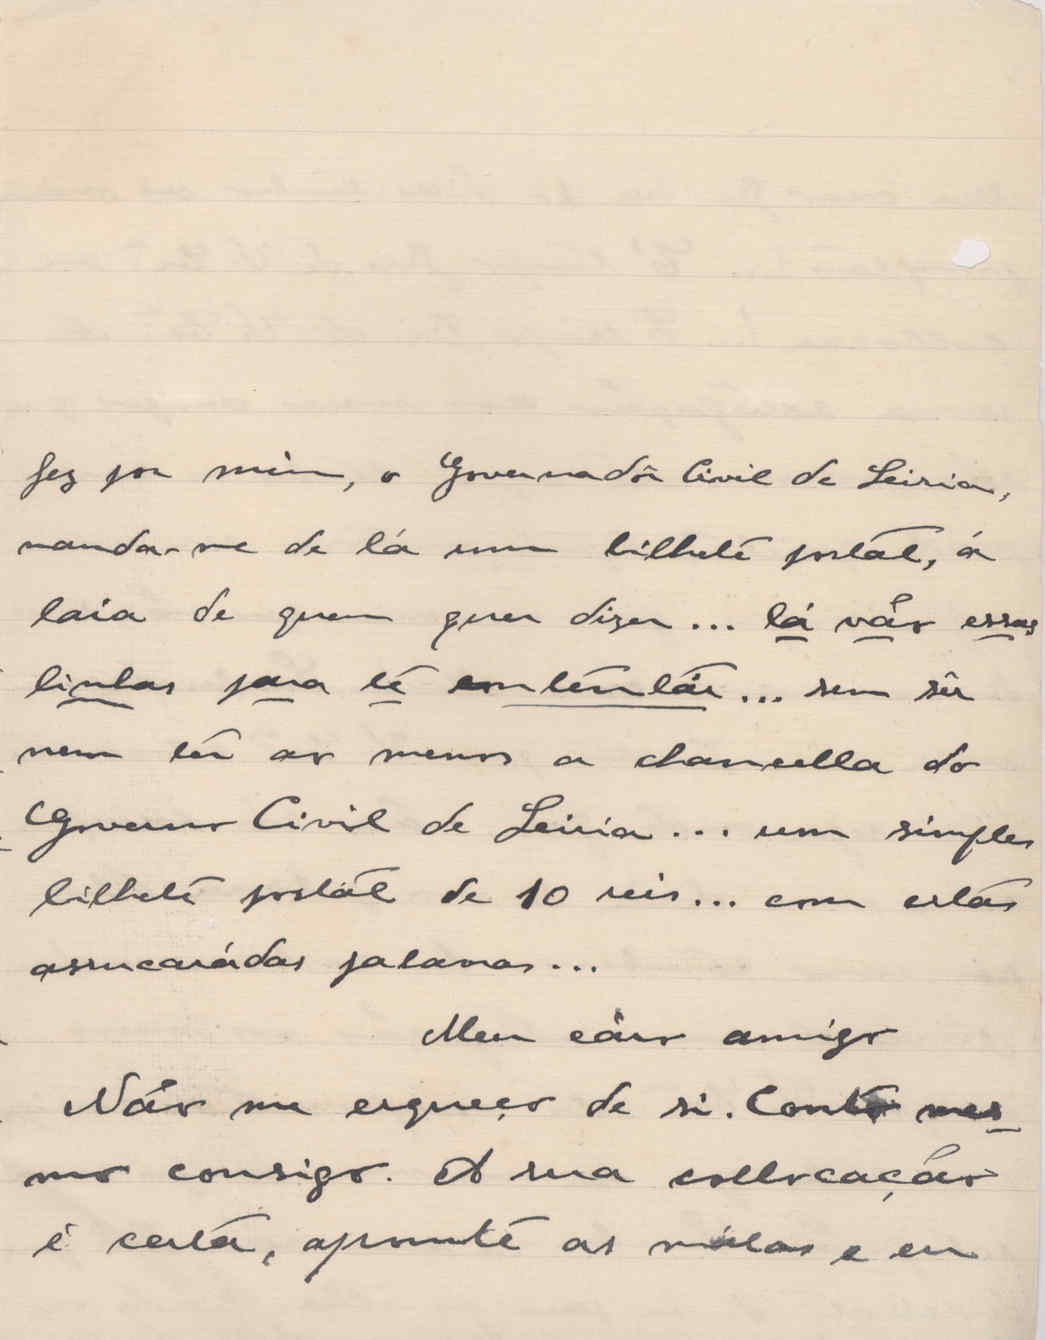 fez por mim, o Governadôr Civil de Leiria,
manda-me de lá um bilhete postal, á
laia de quem quer dizer... lá vão essas
linhas para te contentár... sem sêr
nem ter ao menos a chancella do
Governo Civil de Leiria... um simples
bilhete postál de 10 reis... com estas
assucarádas palavras...
Meu cáro amigo
Não me esqueço de si. Conto mes-
mo consigo. A sua collocação
é certa, apronte as málas e eu